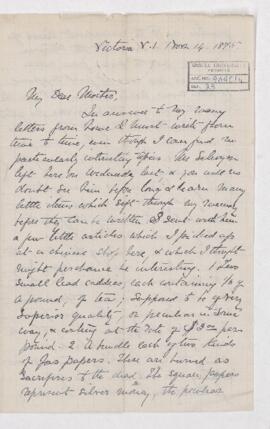 Victoria V.I. Nov. 14. 1875
McGILL UNIVERSITY
ARCHIVES
ACC. NO.
REF. 23
My Dear Mother,
In answer to the many
letters from home I must write from
time to time, even though I can find no
particularly interesting topics. Mr Selwyn
left here on Wednesday last & you will no
doubt see him before long & learn many
little items which slip through my
before they can be written. I sent with him
a few little articles which I picked up
at a chinese shop here, & which I thought
might perchance be interesting. 1. Two
small lead caddies, each containing ½ of
a pound, of tea; supposed to be of very
superior quality, or peculiar in some
way, & costing at the rate of $3 per
pound. 2 A bundle each of two kinds
of Joss papers. These are burned as
sacrifices to the dead. The square papers
represent silver money, the peculiar